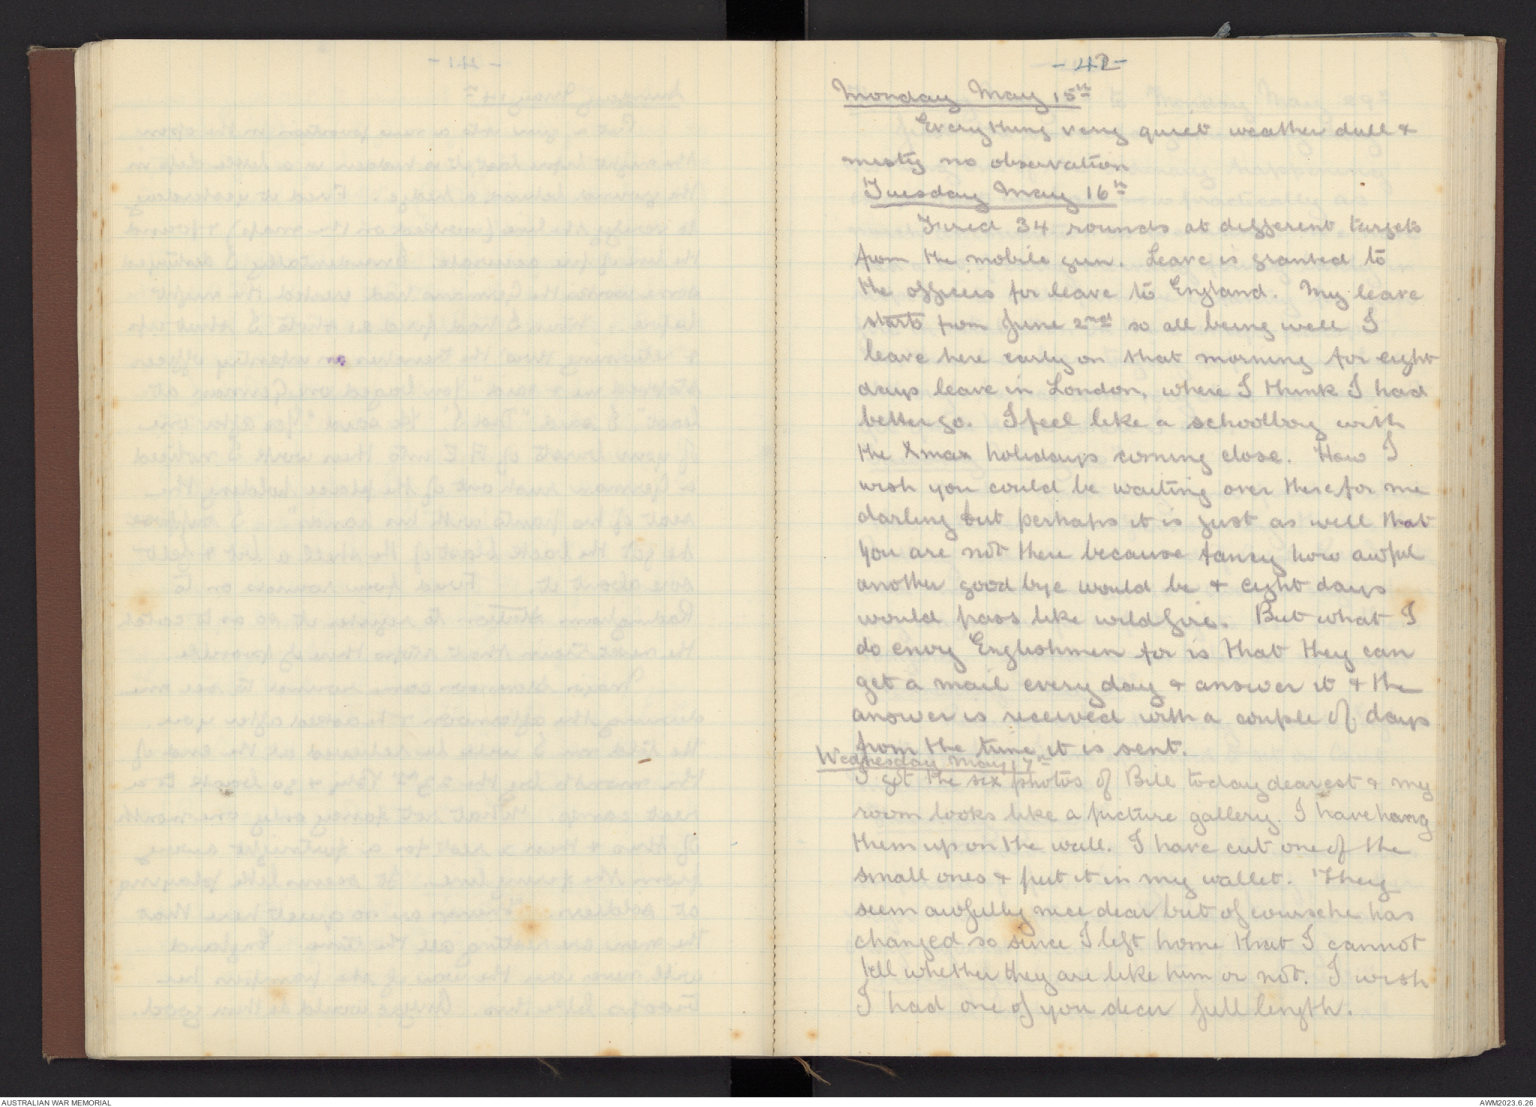 - 42 -
Monday May 15th
Everything very quiet weather dull &
misty no observation
Tuesday May 16th
Fired 34 rounds at different targets
from the mobile gun. Leave is granted to
the officers for leave to England. My leave
starts from June 2nd so all being well I
leave here early on that morning for eight
days leave in London, where I think I had
better go. I feel like a schoolboy with
the Xmas holidays coming close. How I
wish you could be waiting over there for me
darling but perhaps it is just as well that
you are not there because fancy how awful
another good bye would be & eight days
would pass like wildfire. But what I
do envy Englishmen for is that they can
get a mail every day & answer it & the
answer is received with a couple of days
from the time it is sent.
Wednesday May 17th
I got the six photos of Bill today dearest & my
room looks like a picture gallery. I have hang
them up on the wall. I have cut one of the
small ones & put it in my wallet. They
seem awfully nice dear but of course he has
changed so since I left home that I cannot
tell whether they are like him or not. I wish
I had one of you dear full length.
AUSTRALIAN WAR MEMORIAL
AWM2023.6.26